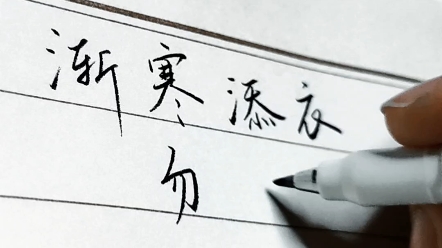 渐寒添衣
勿